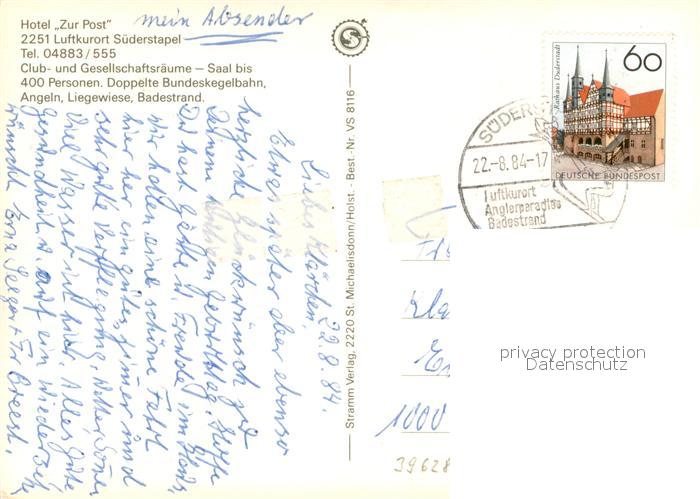 Hotel „Zur Post"
2251 Luftkurort Süderstapel
Tel. 04883/555
Club- und Gesellschaftsräume – Saal bis
400 Personen. Doppelte Bundeskegelbahn,
Angeln, Liegewiese, Badestrand.
mein Absender
22.8.84.
Liebes Klärchen,
Etwas später aber ebenso
herzliche Glückwünsch zu
Deinem Geburtstag. Hoffe
Du hast Gäste u. Freude im Haus,
wir hatten eine schöne Fahrt
hier her ein gutes Zimmer und
sehr gute Verpflegung, Wetter Sonne
viel Wasser ist hier. Alles Gute
Gesundheit u. auf ein Wiederseh
wünscht Erna
Stramm Verlag, 2220 St. Michaelisdonn/Holst. - Best.-Nr. VS 8116
S
Rathaus Duderstadt
60
DEUTSCHE BUNDESPOST
SÜDERS
22.-8.84-17
Luftkurort
Anglerparadies
Badestrand
1000
39628
privacy protection
Datenschutz